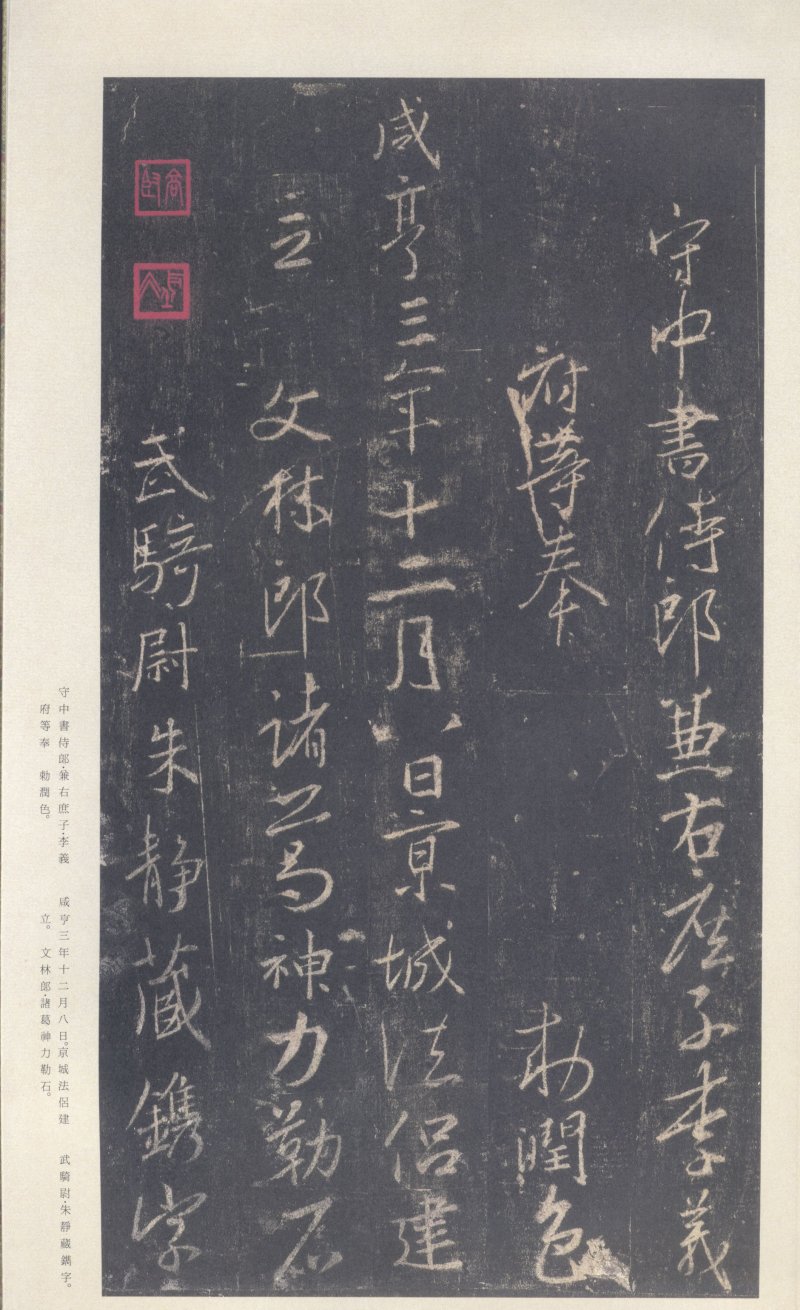 守中書侍郎兼右庶子李義
府等奉 勅潤色
咸亨三年十二月八日京城法侶建
立 文林郎諸葛神力勒石
武騎尉朱静藏鐫字
守中書侍郎·兼右庶子·李義
府等奉 勅潤色。
咸亨三年十二月八日。京城法侶建
立。 文林郎·諸葛神力勒石。
武騎尉·朱靜藏鐫字。